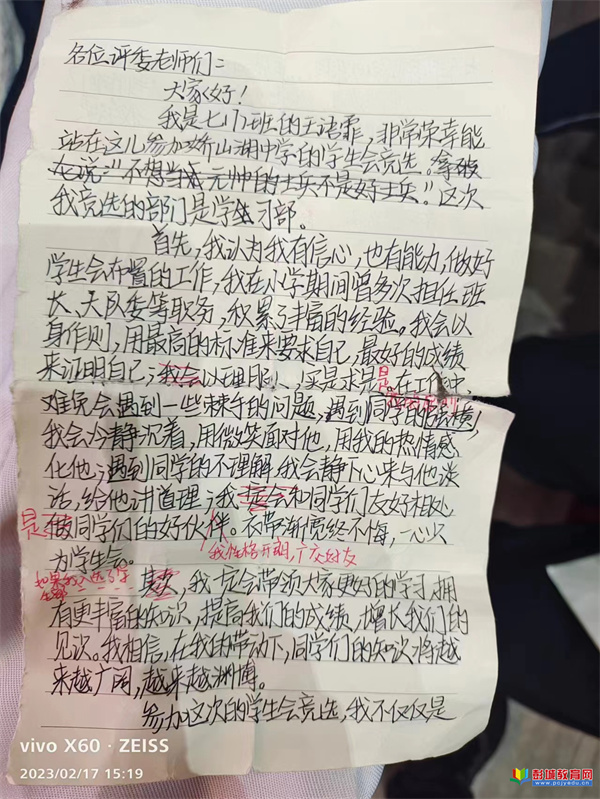 各位评委老师们：
大家好！
我是七17班的王诺霏，非常荣幸能
站在这儿参加娇山湖中学的学生会竞选。拿破
仑说："不想当元帅的士兵不是好士兵"。这次
我竞选的部门是学习部。
首先，我认为我有信心，也有能力，做好
学生会布置的工作，我在小学期间曾多次担任班
长、大队委等职务，积累了丰富的经验。我会以
身作则，用最高的标准来要求自己，最好的成绩
来证明自己；我会以理服人，实是求是。在工作中，
难免会遇到一些棘手的问题，遇到同学的蛮横，
我会冷静沉着，用微笑面对他，用我的热情感
化他；遇到同学的不理解，我会静下心来与他谈
话，给他讲道理；我一定会和同学们友好相处
是 做同学们的好伙伴。衣带渐宽终不悔，一心只
我性格开朗，广交好友
为学生会。
如果我入选了学
其次，我一定会带领大家更好的学习，拥
有更丰富的知识，提高我们的成绩，增长我们的
见识。我相信，在我的带动下，同学们的知识将越
来越广阔，越来越渊博。
参加这次的学生会竞选，我不仅仅是
vivo X60 · ZEISS
2023/02/17 15:19
彭城教育网
www.pcjyedu.cn